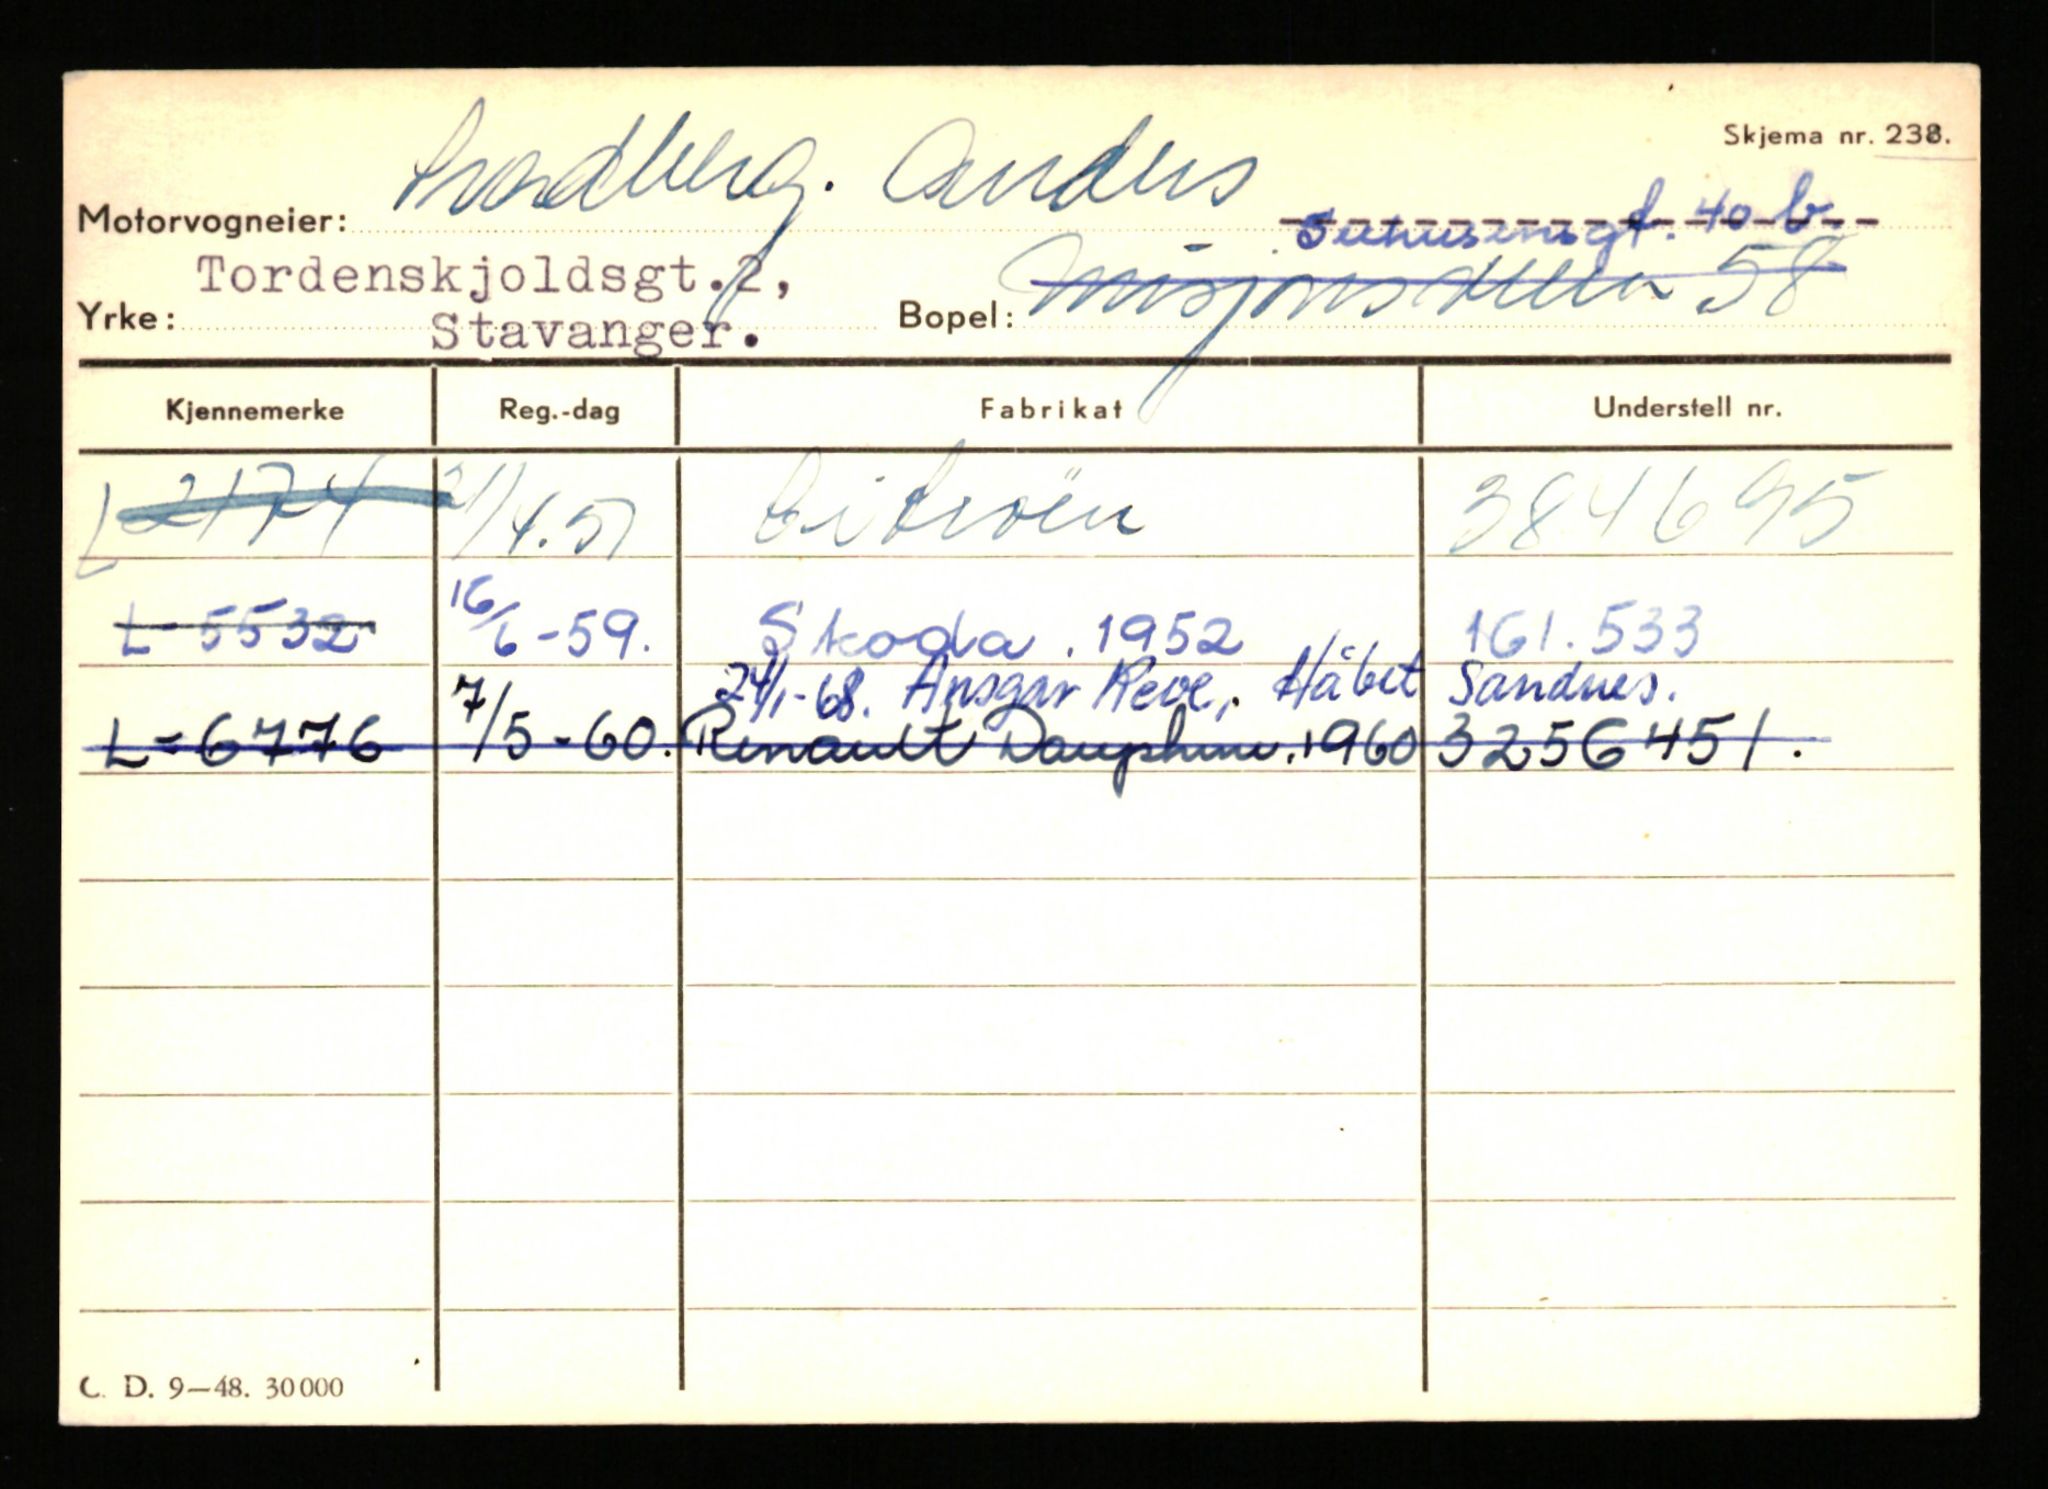 Skjema nr. 238.
Motorvogneier: Anders
gt. 40 b.
Tordenskjoldsgt. 2,
Yrke: Bopel: Misjonsveien 58
Stavanger.
Kjennemerke Reg.-dag Fabrikat Understell nr.
L 2174 21/4.51 Citroën 384695
L-5532 16/6-59. Skoda. 1952 161.533
24/1-68. Ansgar Reve, Håbet Sandnes.
L-6776 7/5-60. Renault Dauphine. 1960 3256451.
C. D. 9—48. 30000